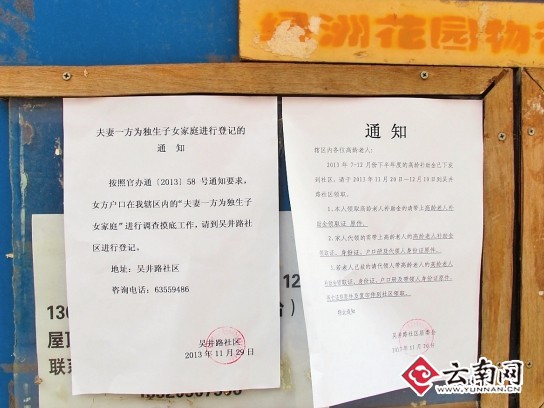 绿洲花园物
夫妻一方为独生子女家庭进行登记的
通 知
按照官办通［2013］58 号通知要求，
女方户口在我辖区内的“夫妻一方为独生子
女家庭”进行调查摸底工作，请到吴井路社
区进行登记。
地址：吴井路社区
咨询电话：63559486
吴井路社区
2013年11月29日
通 知
辖区内各位高龄老人：
2013 年 7-12 月份下半年度的高龄补助金已下发
到社区，请于 2013 年 11 月 29 日—12 月 10 日到吴井
路社区领取。
1、本人领取高龄老人补助金的请带上高龄老人补
助金领取证 原件。
2、家人代领的需带上高龄老人的高龄老人补助金
领取证、身份证、户口册及代领人身份证原件。
3、若老人已故的请代领人带高龄老人的高龄老人
补助金领取证、身份证、户口册及领人身份证原件、
特此通知
吴井路社区居委会
2013年11月26日
130
屋顶
联系
12
台）
云南网
WWW.YUNNAN.CN